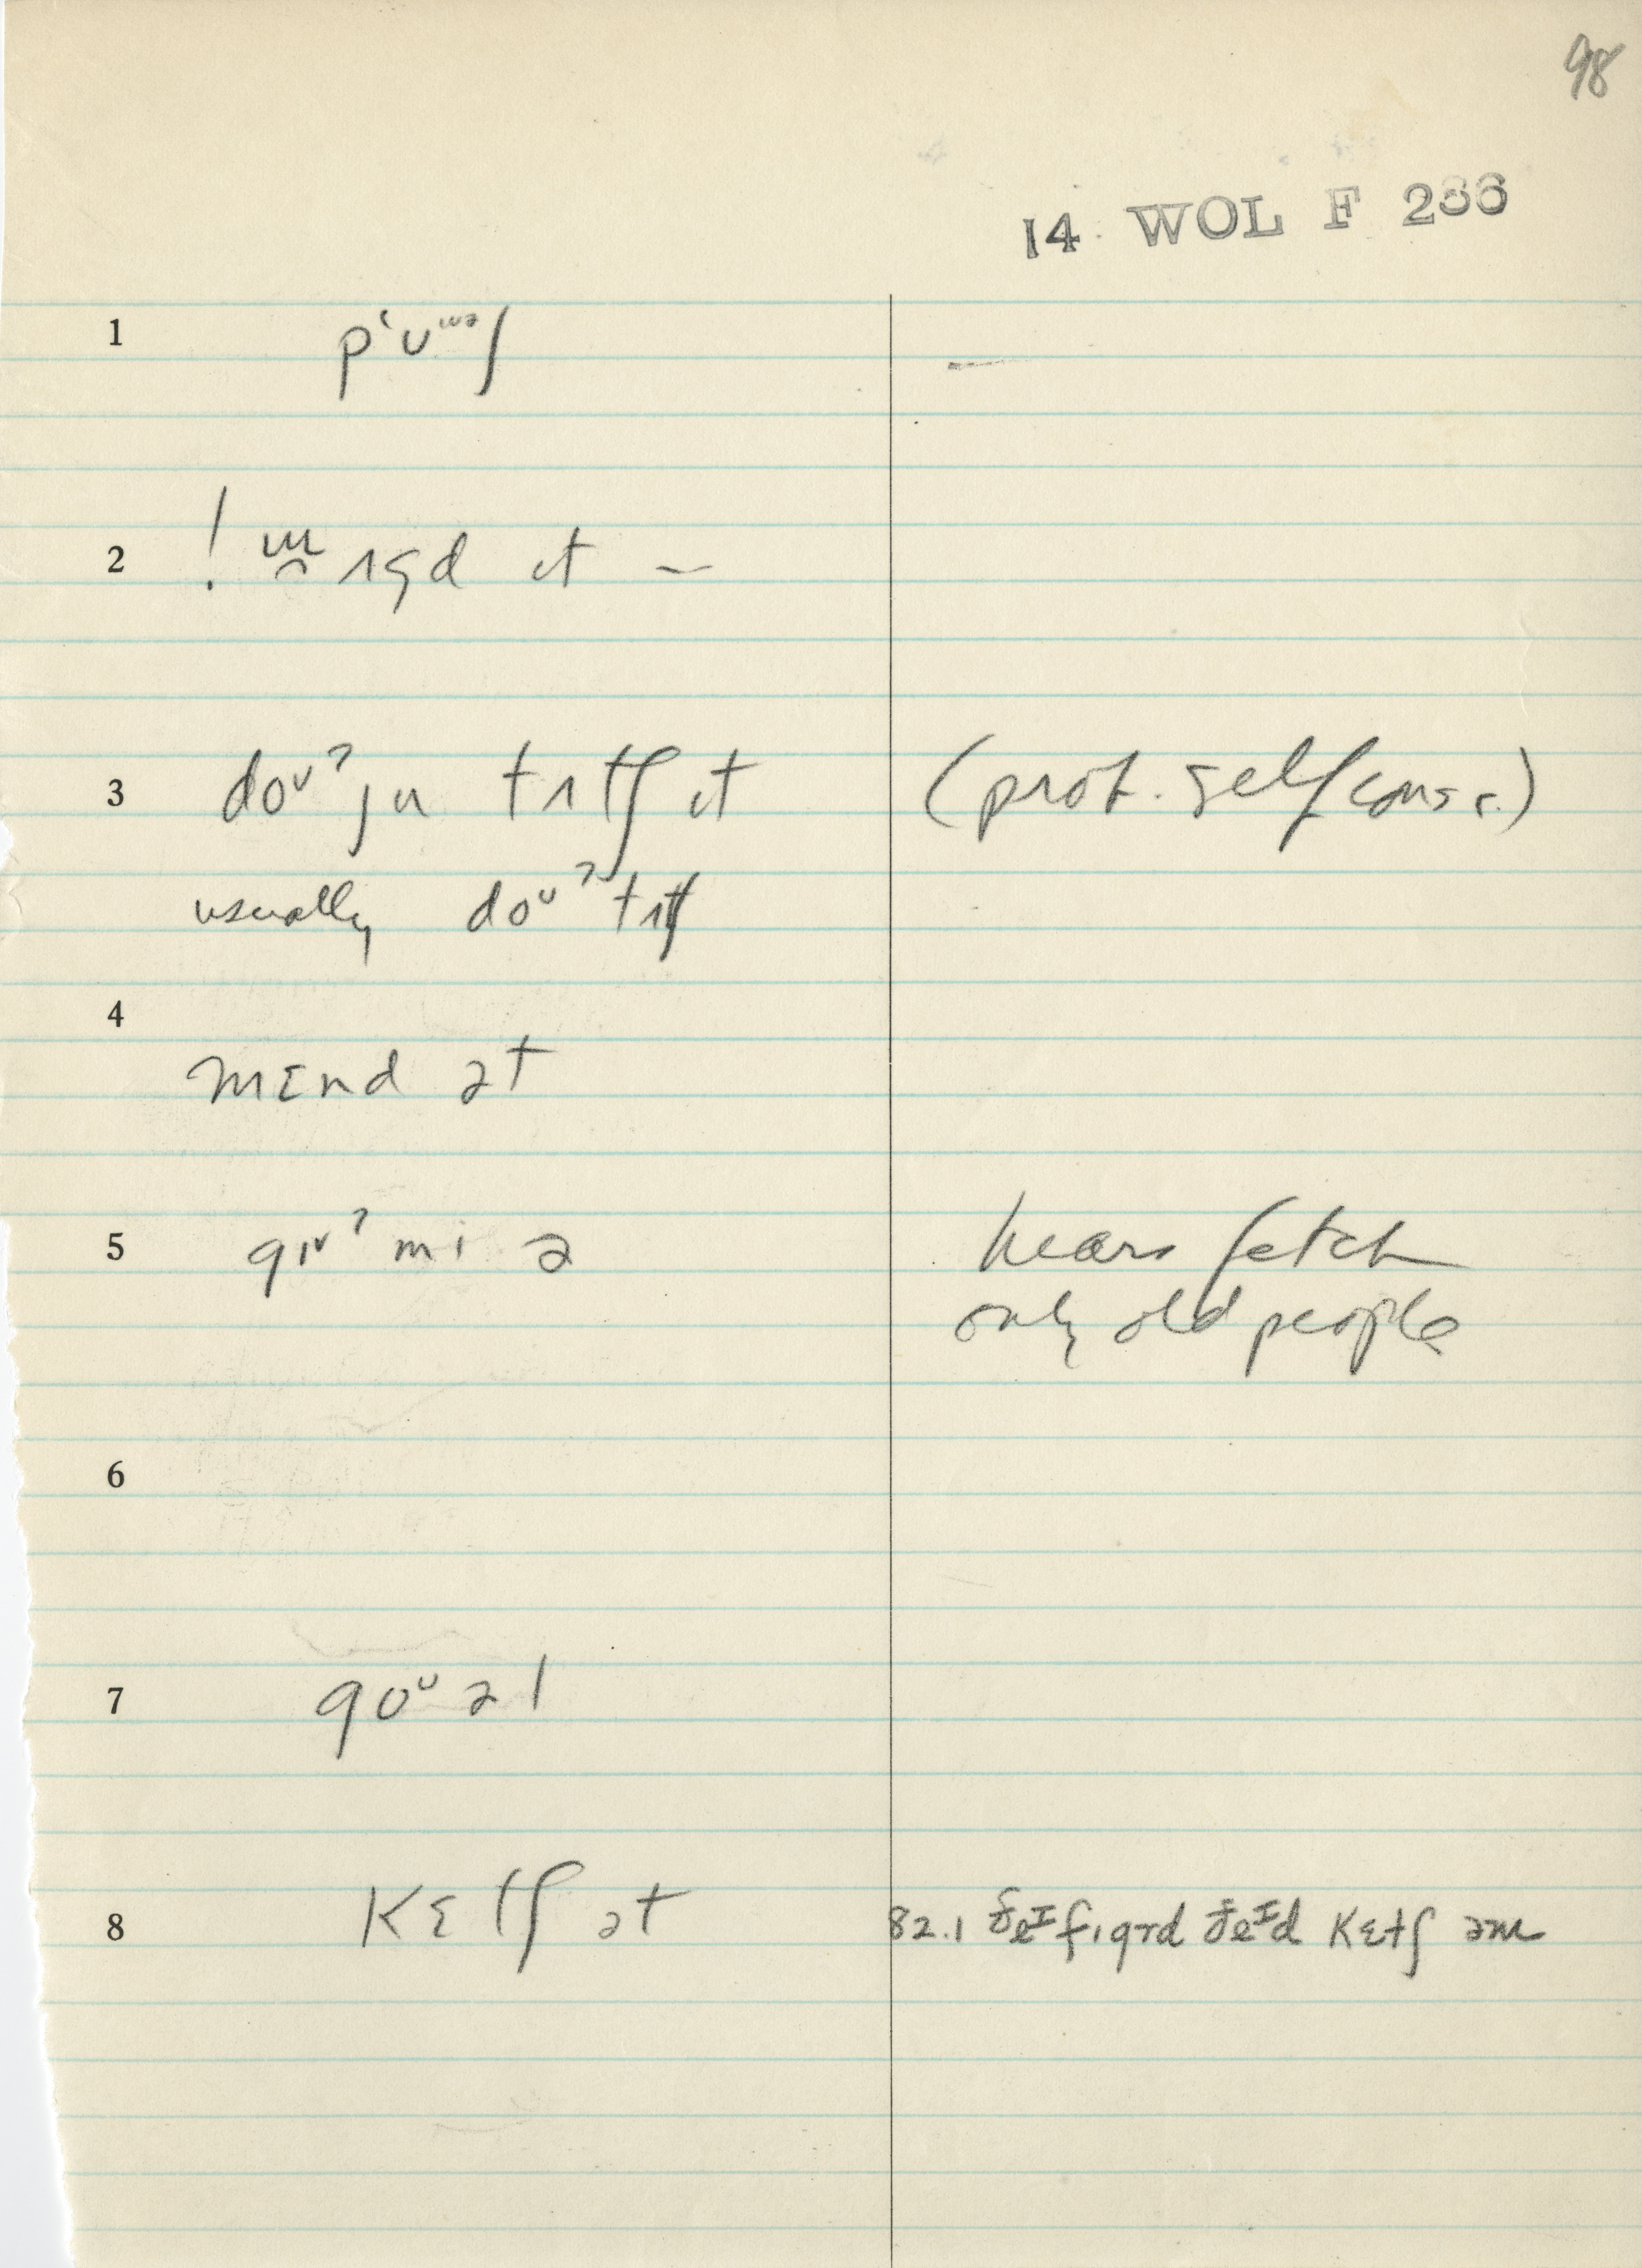 98
14 WOL F 286
1 pʻᴜᵚᵊʃ —
2 ! ɹɪgd ɪt –
3 doᴜˀ ju tʌtʃ ɪt (prob. self cons c.)
usually doᴜˀ tʌtʃ
4
mɛnd ət
5 gɪᵛˀ mi ə hears fetch
only old people
6
7 goᶷ əl
8 kɛtʃ ət 82.1 ðeɪ fɪgɤd ðeɪd kɛtʃ əm